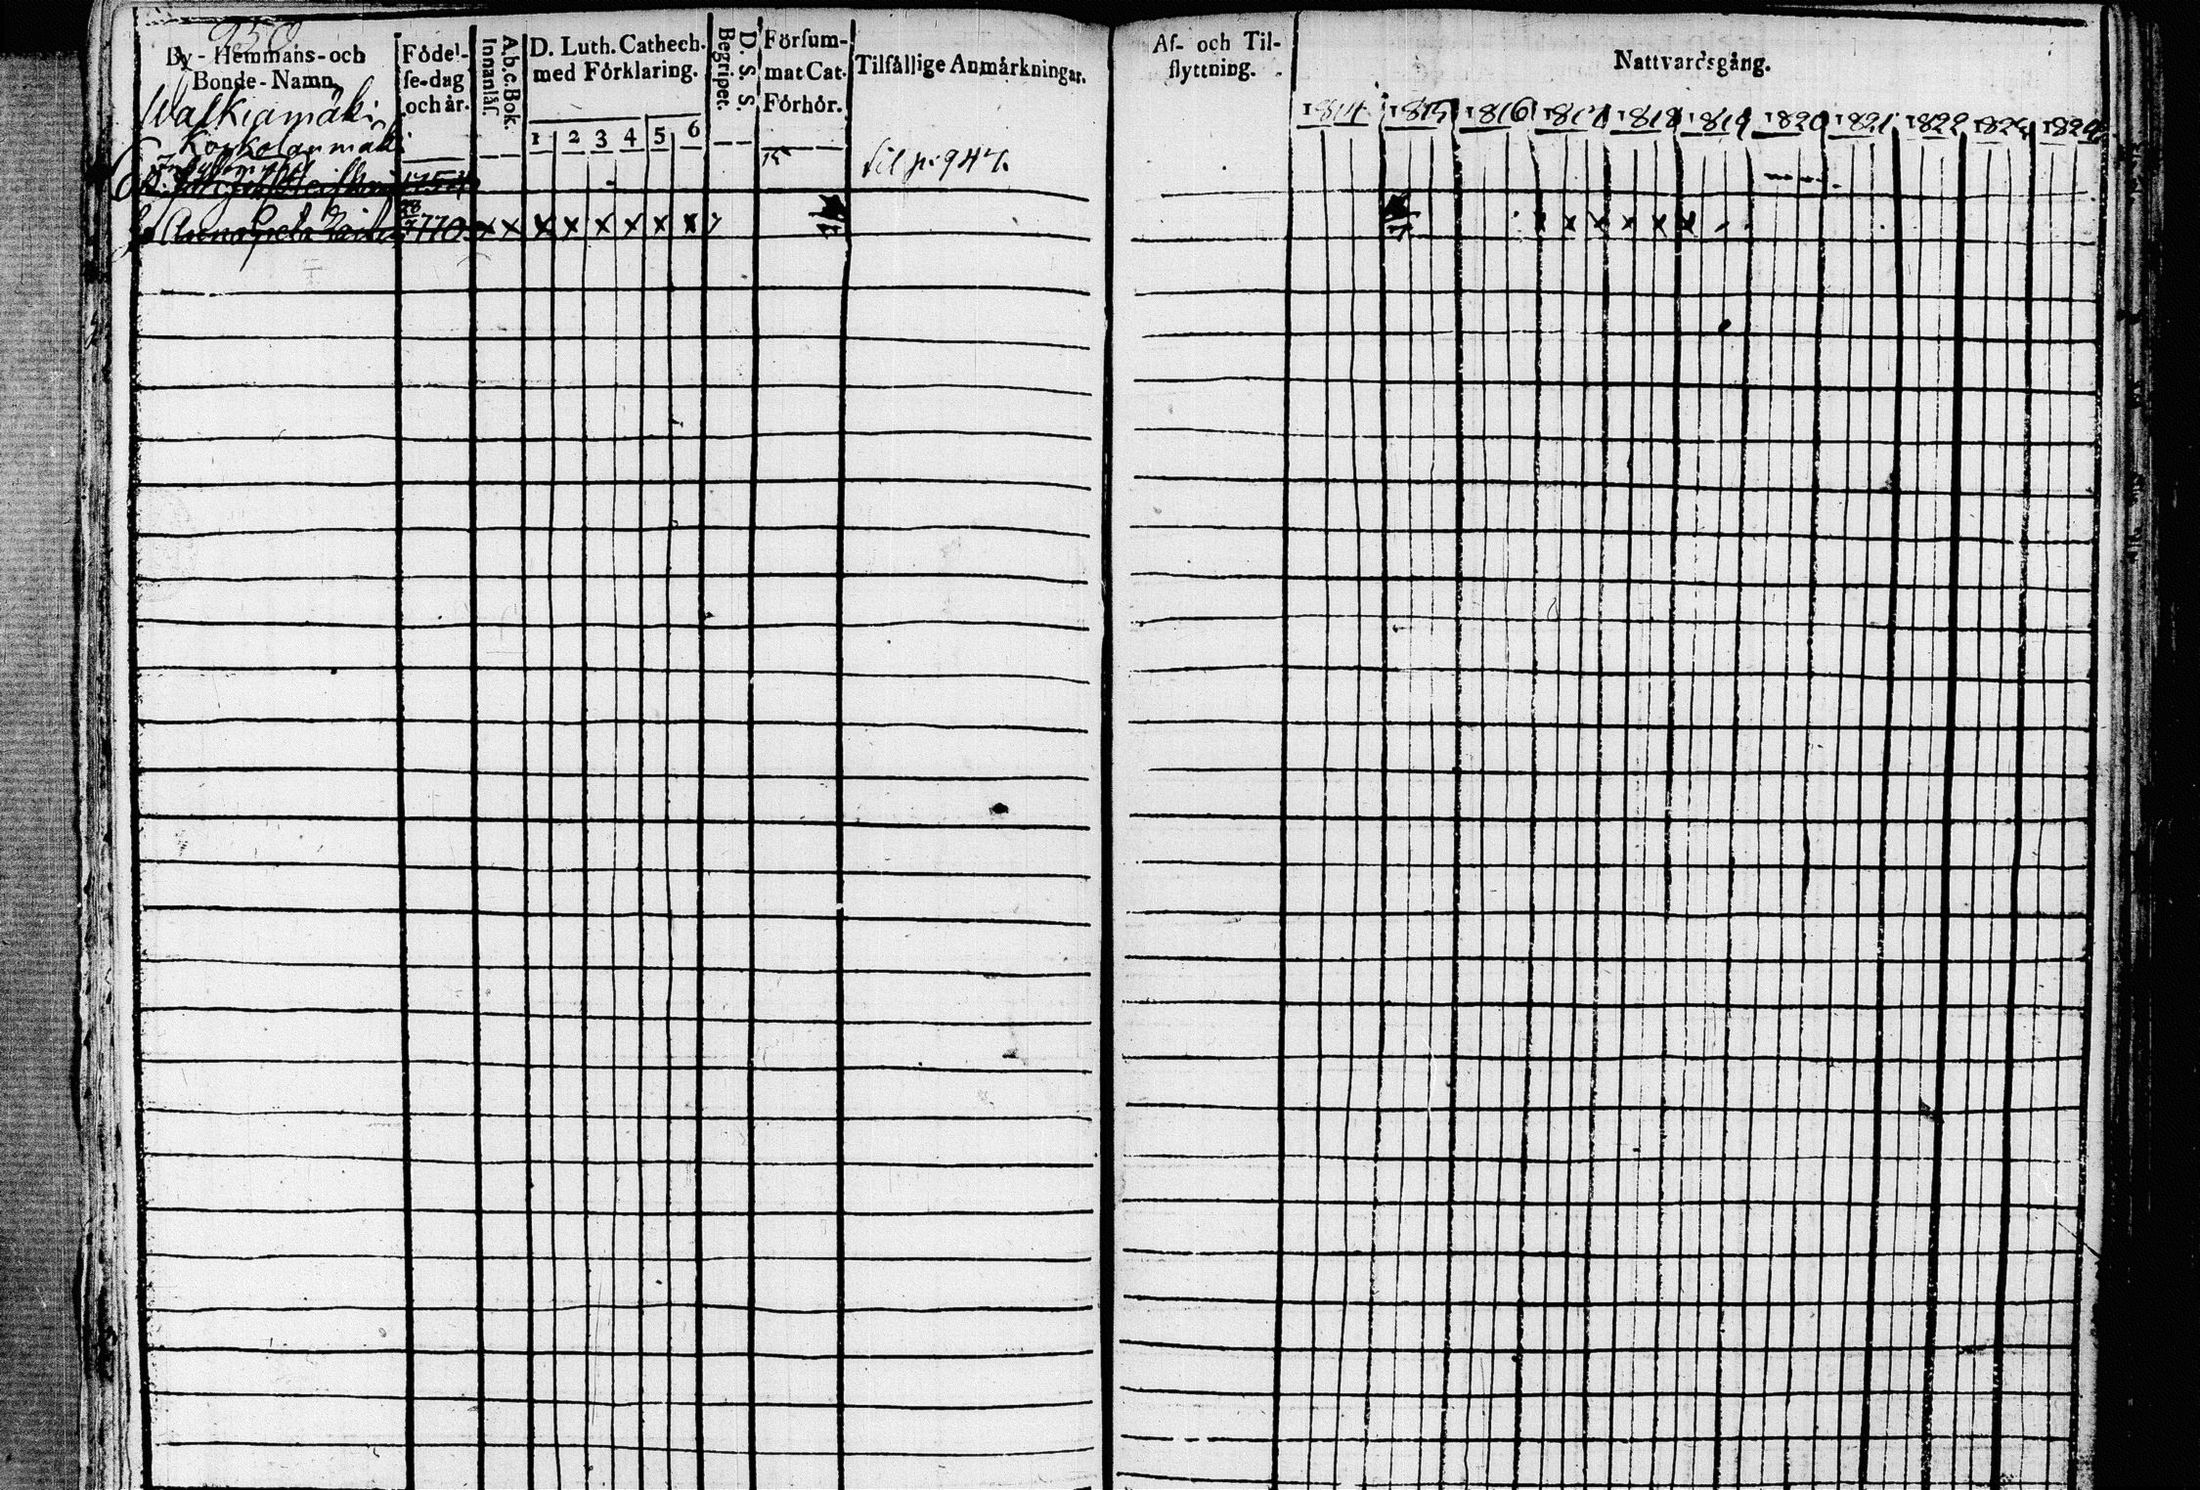 950
By-Hemmans-och
Bonde-Namn.
Födel-
se-dag
och år.
A.b.c. Bok.
Innanläs.
D. Luth. Cathech.
med Förklaring.
1 2 3 4 5 6
D. S. S.
Begriper.
Försum-
mat Cat.
Förhör.
Tilfällige Anmärkningar.
Af- och Til-
flyttning.
Nattvardsgång.
1814 1815 1816 1817 1818 1819 1820 1821 1822 1823 1824
Walkiamäki
Korkolanmäki
1754
til p. 947.
28
1770 x x x x x x x x
x x x x x x